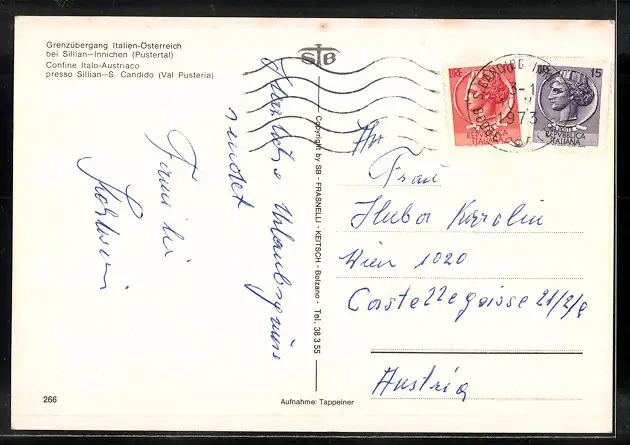 Grenzübergang Italien-Österreich
bei Sillian-Innichen (Pustertal)
Confine Italo-Austriaco
presso Sillian-S. Candido (Val Pusteria)
STB
LIRE
LIRE 15
S. CANDIDO
1973
REPUBBLICA
ITALIANA
REPUBBLICA
ITALIANA
Herzliche Urlaubsgrüsse
sendet
Familie
Copyright by SB - FRASNELLI - KEITSCH - Bolzano - Tel. 38 3 55
An
Frau
Huba Karolin
Wien 1020
Castellegasse 21/2/9
Austria
266
Aufnahme: Tappeiner